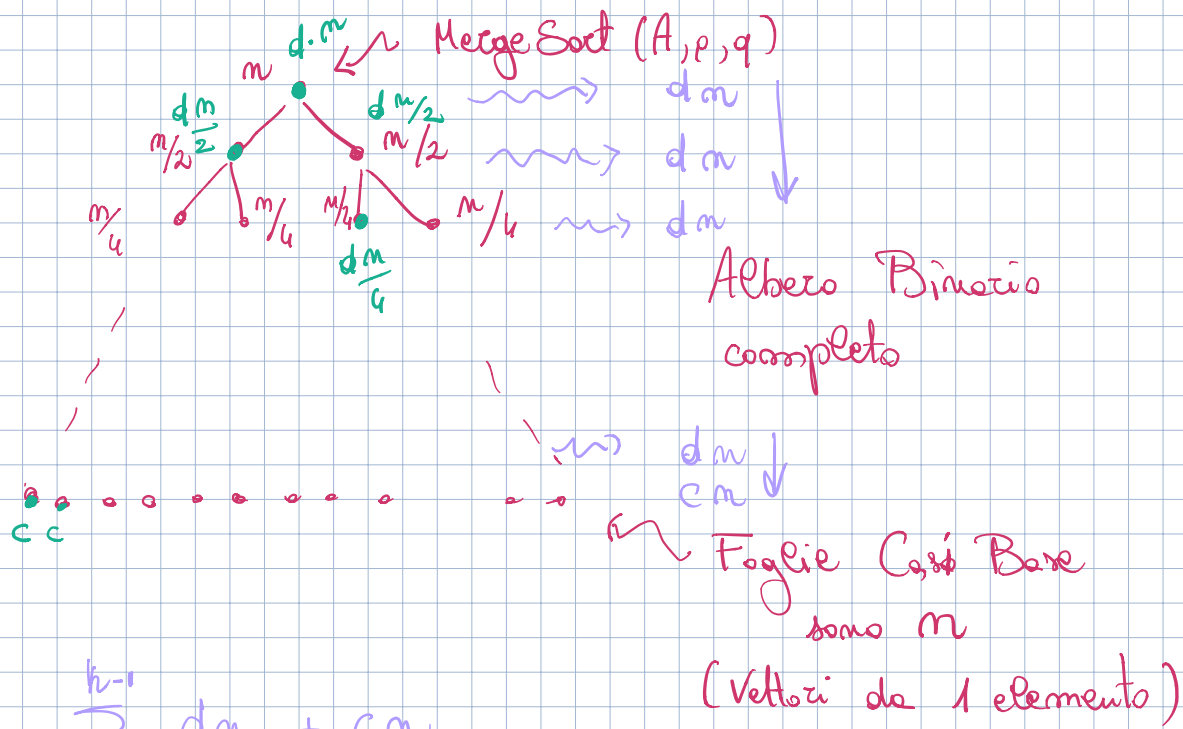 d·n MergeSort (A,p,q)
n
d n/2 d n/2 dn
n/2 n/2 dn
n/4 n/4 n/4 n/4 dn
d n/4
Albero Binario
completo
dn
cn
c c
Foglie Casi Base
sono n
h-1
(Vettori da 1 elemento)
dn + cn